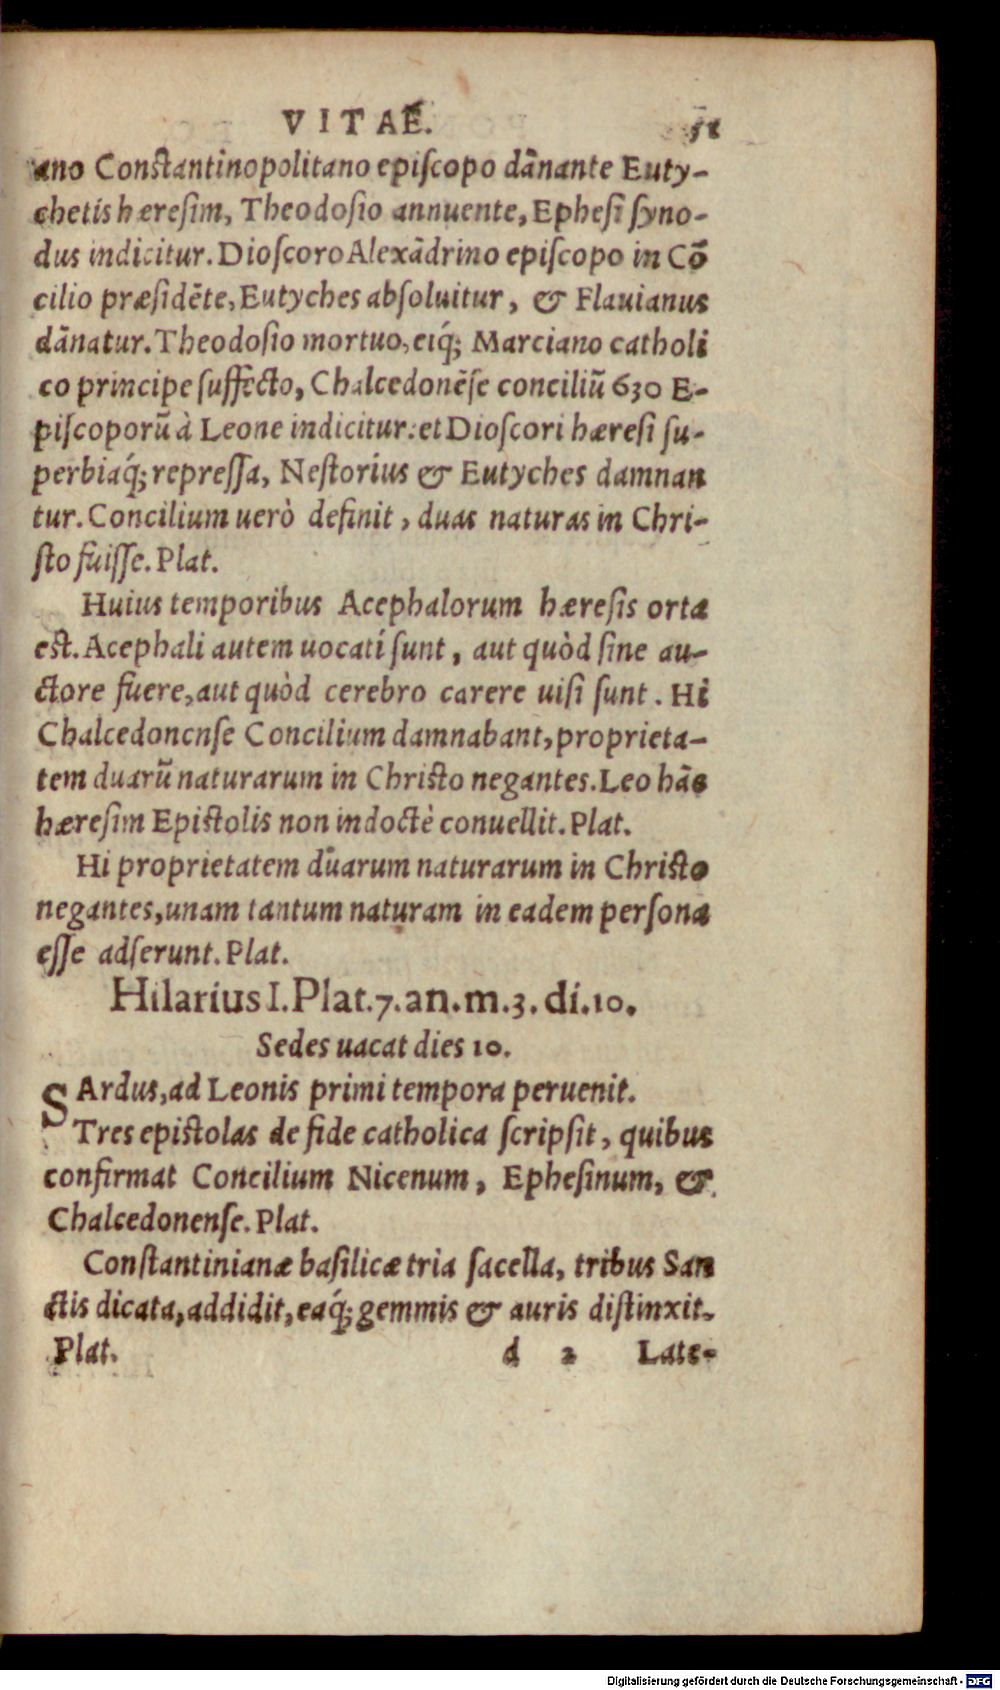 VITAE. 51
ano Constantinopolitano episcopo dãnante Euty-
chetis hæresim, Theodosio annuente, Ephesi syno-
dus indicitur. Dioscoro Alexãdrino episcopo in Cõ
cilio præsidẽte, Eutyches absoluitur, & Flauianus
dãnatur. Theodosio mortuo, eiq́; Marciano catholi
co principe suffecto, Chalcedonẽse conciliũ 630 E-
piscoporũ à Leone indicitur: et Dioscori hæresi su-
perbiaq́; repressa, Nestorius & Eutyches damnan
tur. Concilium uerò definit, duas naturas in Chri-
sto fuisse. Plat.
Huius temporibus Acephalorum hæresis orta
est. Acephali autem uocati sunt, aut quòd sine au-
ctore fuere, aut quòd cerebro carere uisi sunt. Hi
Chalcedonense Concilium damnabant, proprieta-
tem duarũ naturarum in Christo negantes. Leo hãc
hæresim Epistolis non indoctè conuellit. Plat.
Hi proprietatem duarum naturarum in Christo
negantes, unam tantum naturam in eadem persona
esse adserunt. Plat.
Hilarius I. Plat. 7. an. m. 3. di. 10.
Sedes uacat dies 10.
SArdus, ad Leonis primi tempora peruenit.
Tres epistolas de fide catholica scripsit, quibus
confirmat Concilium Nicenum, Ephesinum, &
Chalcedonense. Plat.
Constantinianæ basilicæ tria sacella, tribus San
ctis dicata, addidit, eaq́; gemmis & auris distinxit.
Plat. d 2 Late-
Digitalisierung gefördert durch die Deutsche Forschungsgemeinschaft - DFG